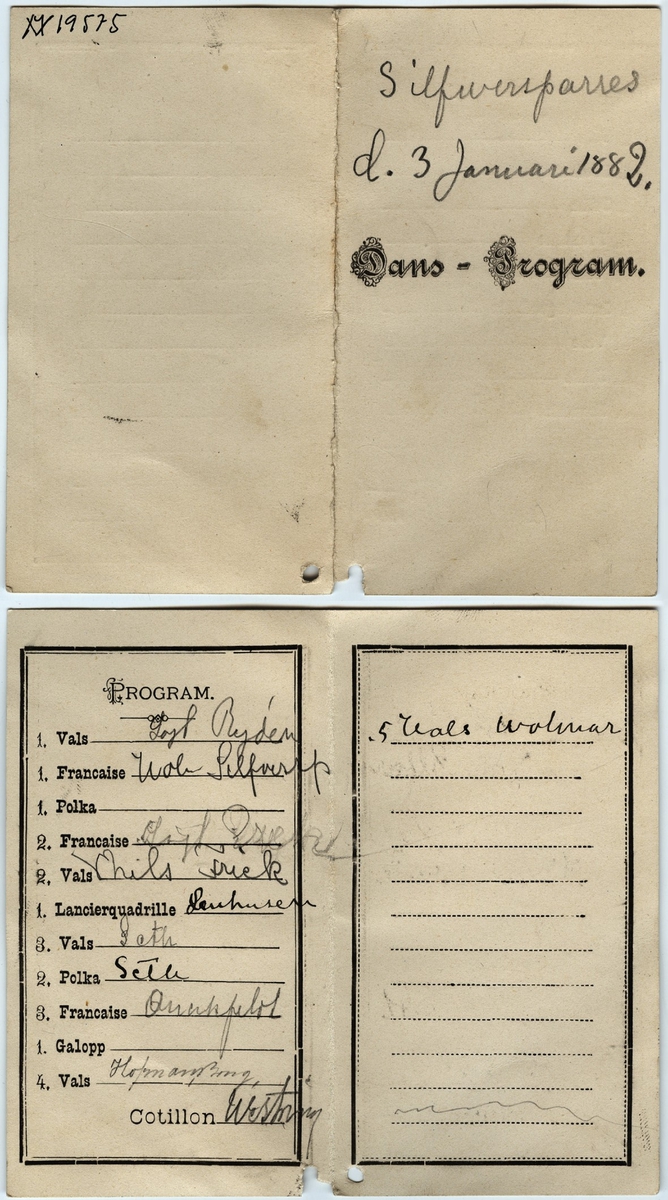 XX19575
Silfwersparres
d. 3 Januari 1882.
Dans - Program.
PROGRAM.
1. Vals Rydén
1. Francaise Wolm Silfversp
1. Polka
2. Francaise
2. Vals Nils Frick
1. Lancierquadrille
3. Vals Seth
2. Polka Seth
3. Francaise
1. Galopp
4. Vals
Cotillon Westring
.5 Vals Wolmar